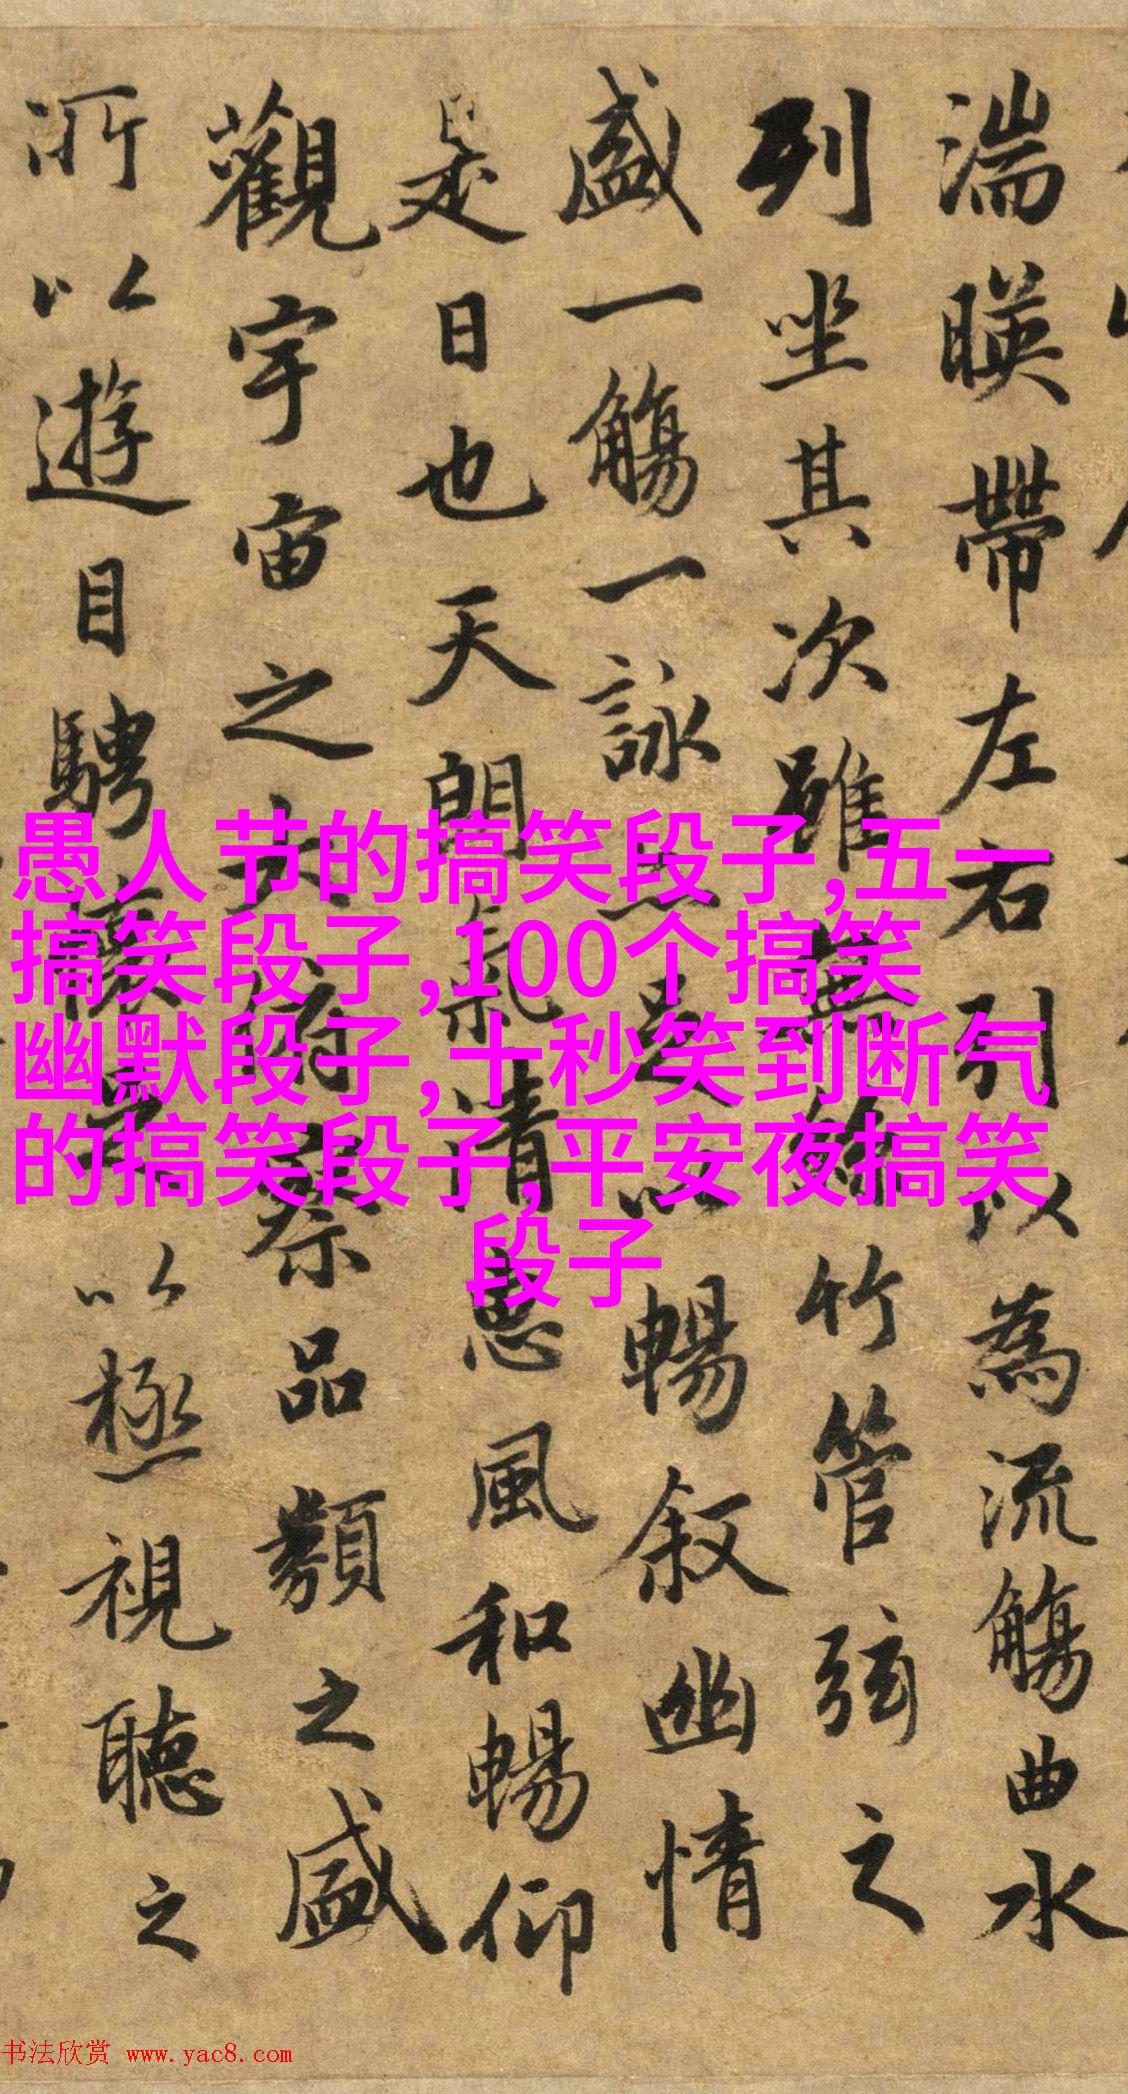 湍暎帶左右引以為流觴曲水
列坐其次雖無絲竹管弦之
盛一觴一詠亦足以暢叙幽情
是日也天朗氣清惠風和暢仰
觀宇宙之大俯察品類之盛
所以遊目騁懷足以極視聽之
愚人节的搞笑段子,五一
搞笑段子,100个搞笑
幽默段子,十秒笑到断气
的搞笑段子,平安夜搞笑
段子
书法欣赏 www.yac8.com